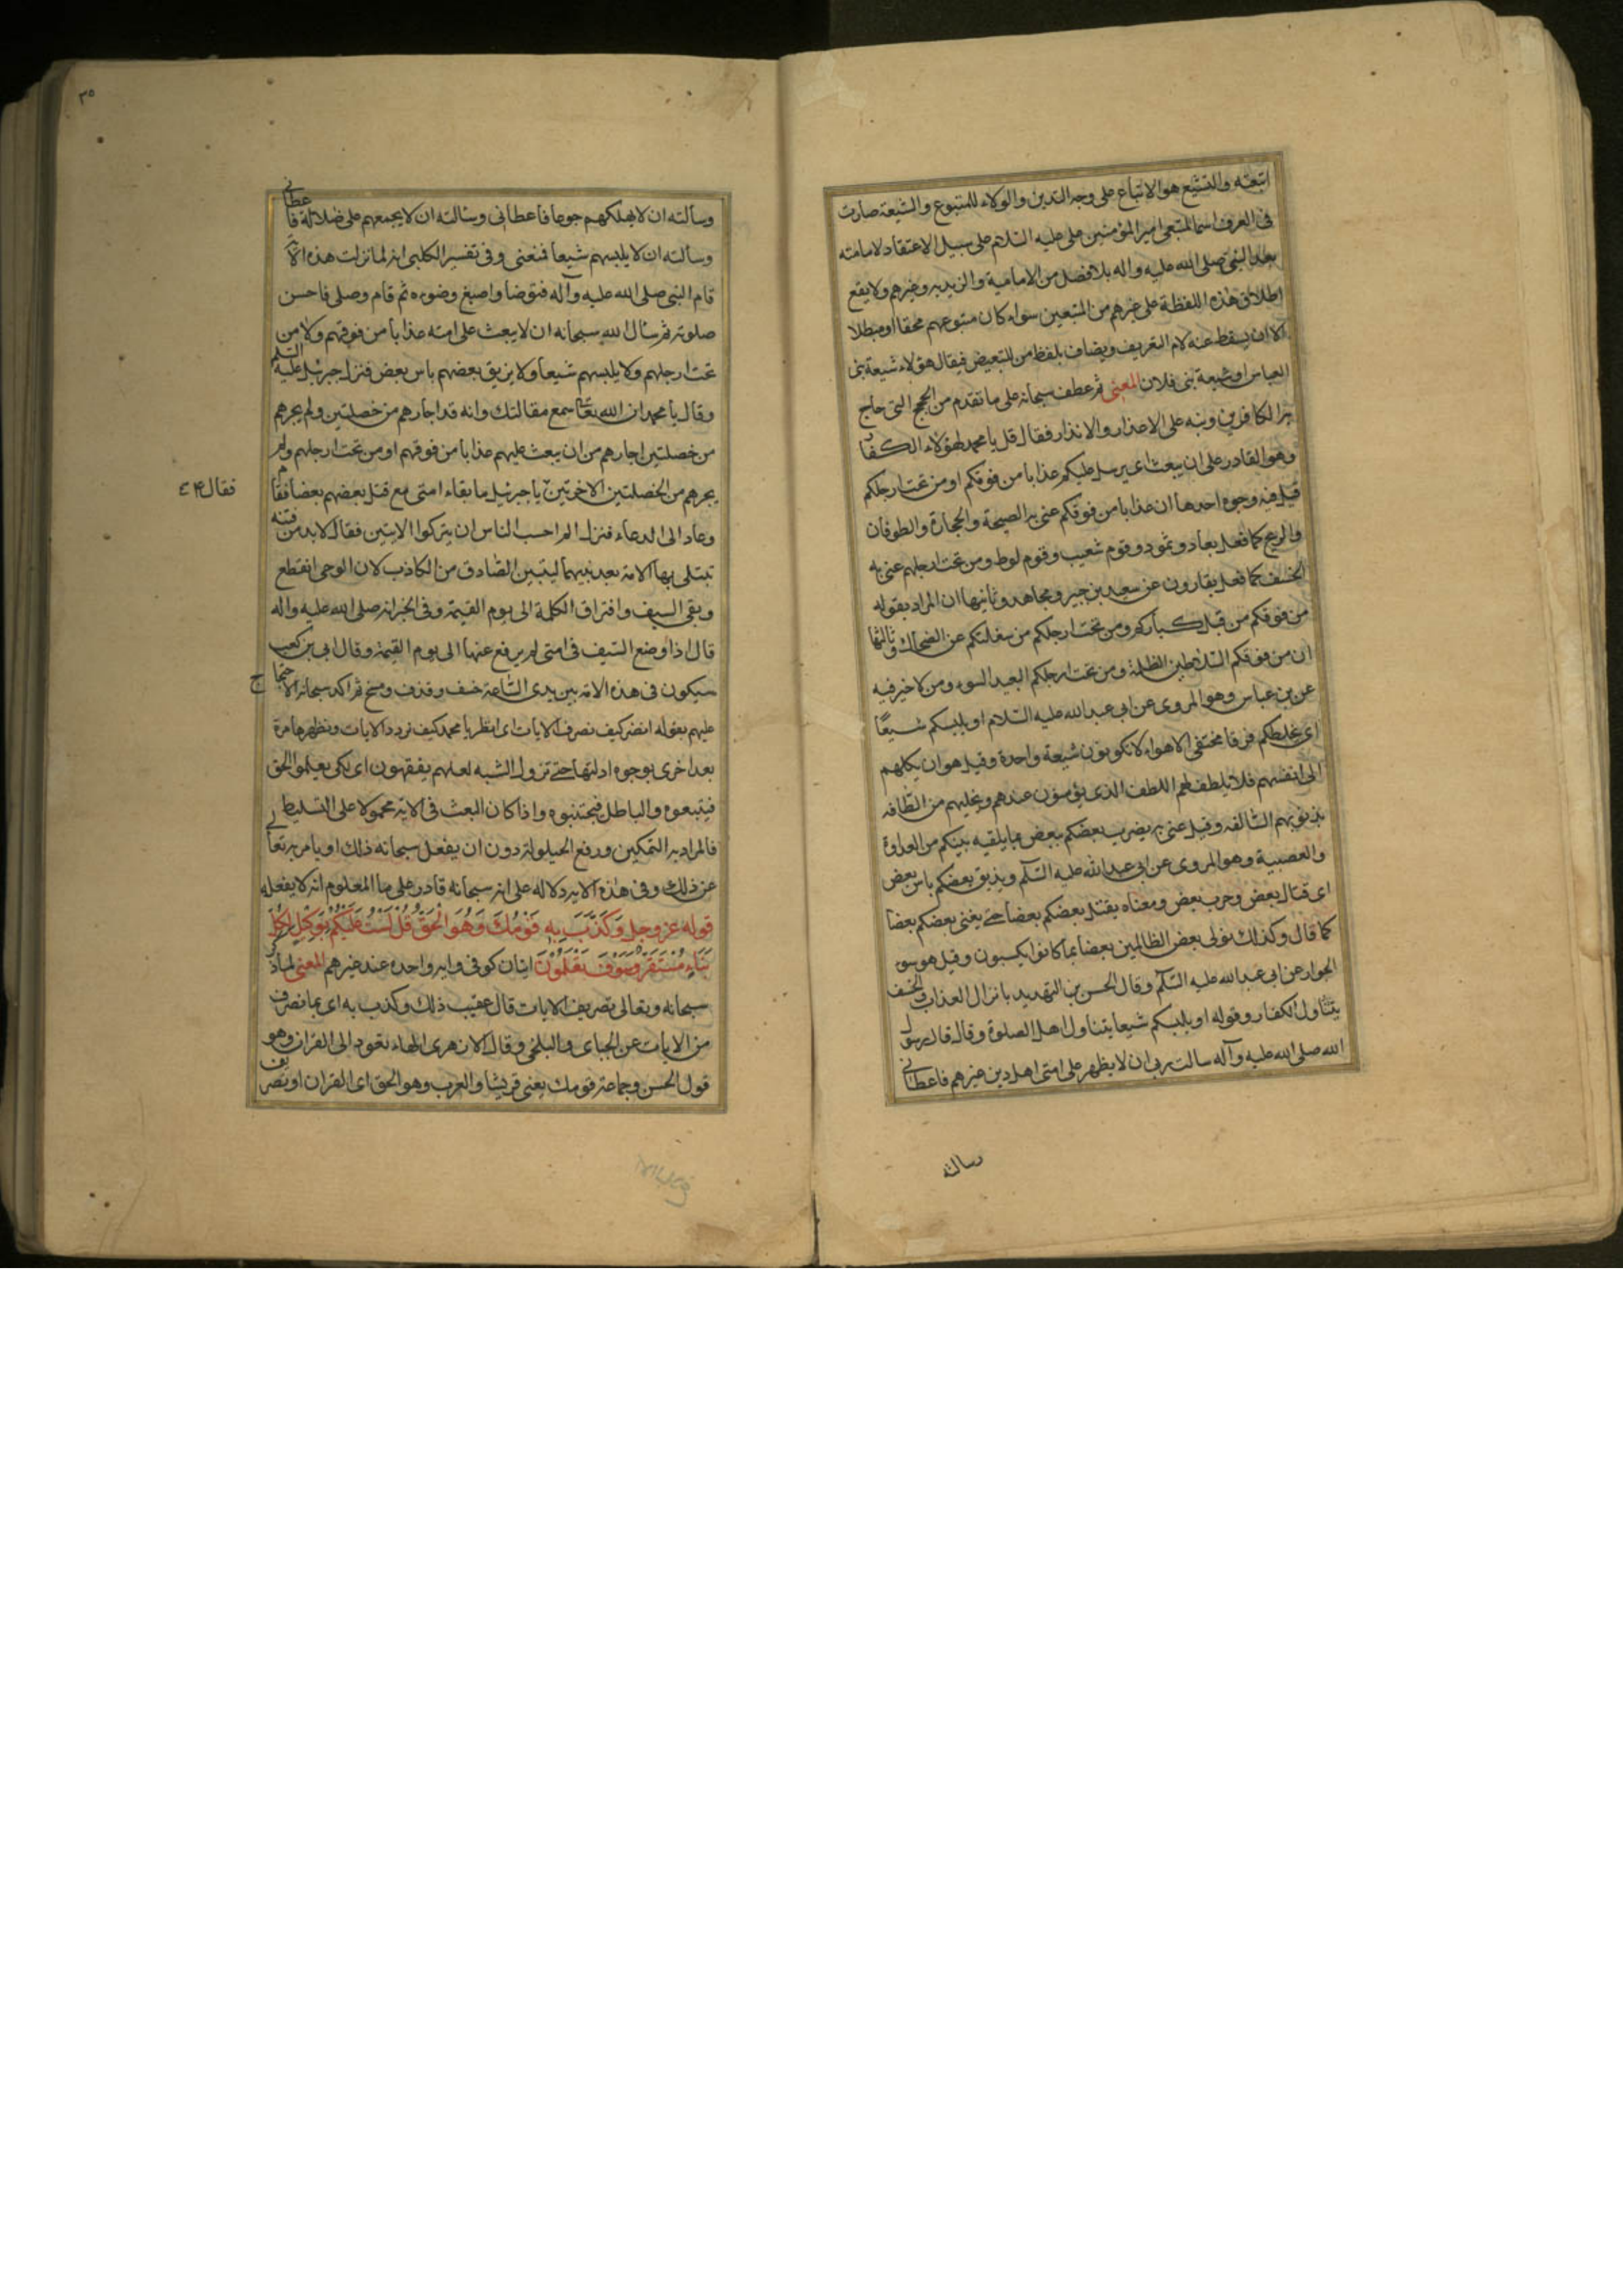 اتبعته والتشيع هو الاتباع على وجه التدين والولاء للمتبوع والشيعة صارت
فى العرف اسما لمتبعى امير المؤمنين على عليه السلام على سبيل الاعتقاد لامامته
بعد النبى صلى الله عليه واله بلا فصل من الامامية والزيدية وغيرهم ولا يقع
اطلاق هذه اللفظة على غيرهم من المتبعين سواء كان متبوعهم محقا او مبطلا
الا ان يسقط عنه لام التعريف ويضاف بلفظ من للتبعيض فيقال هؤلاء شيعة بنى
العباس او شيعة بنى فلان المعنى ثم عطف سبحانه على ما تقدم من الحجج التى حاج
بها الكافرين ونبه على الاعذار والانذار فقال قل يا محمد لهؤلاء الكفار
وهو القادر على ان يبعث اى يرسل عليكم عذابا من فوقكم او من تحت ارجلكم
قيل فيه وجوه احدها ان عذابا من فوقكم عنى به الصيحة والحجارة والطوفان
والريح كما فعل بعاد وثمود وقوم شعيب وقوم لوط ومن تحت ارجلهم عنى به
الخسف كما فعل بقارون عن سعيد بن جبير ومجاهد وثانيها ان المراد بقوله
من فوقكم من قبل كباركم ومن تحت ارجلكم من سفلتكم عن الضحاك وثالثها
ان من فوقكم السلاطين الظلمة ومن تحت ارجلكم العبيد السوء ومن لا خير فيه
عن بن عباس وهو المروى عن ابى عبد الله عليه السلام او يلبسكم شيعًا
اى يخلطكم فرقا مختلفى الاهواء لا تكونون شيعة واحدة وقيل هو ان يكلهم
الى انفسهم فلا يلطف لهم اللطف الذى يؤمنون عندهم ويخليهم من الطافه
بذنوبهم السالفه وقيل عنى به يضرب بعضكم ببعض بما يلقيه بينكم من العداوة
والعصبية وهو المروى عن ابى عبد الله عليه السلم ويذيق بعضكم باس بعض
اى قتال بعض وحرب بعض ومعناه يقتل بعضكم بعضا حتى يفنى بعضكم بعضا
كما قال وكذلك نولى بعض الظالمين بعضا بما كانوا يكسبون وقيل هو سوء
الجوار عن ابى عبد الله عليه السلم وقال الحسن بن التهديد بانزال العذاب والخسف
يتناول الكفار وقوله او يلبسكم شيعا يتناول اهل الصلوة وقال قال رسول
الله صلى الله عليه وآله سالت ربى ان لا يظهر على امتى اهل دين غيرهم فاعطانى
رسالته
٣٥
وسألته ان لا يهلكهم جوعا فاعطانى وسألته ان لا يجمعهم على ضلالة فاعطانى
وسألته ان لا يلبسهم شيعا فمنعنى وفى تفسير الكلبى انه لما نزلت هذه الآية
قام النبى صلى الله عليه وآله فتوضا واصبغ وضوءه ثم قام وصلى فاحسن
صلوته ثم سأل الله سبحانه ان لا يبعث على امته عذابا من فوقهم ولا من
تحت ارجلهم ولا يلبسهم شيعا ولا يذيق بعضهم باس بعض فنزل جبرئيل عليه السلم
وقال يا محمد ان الله تعا سمع مقالتك وانه قد اجارهم من خصلتين ولم يجرهم
من خصلتين اجارهم من ان يبعث عليهم عذابا من فوقهم او من تحت ارجلهم ولم
يجرهم من الخصلتين الاخرتين يا جبرئيل ما بقاء امتى مع قتل بعضهم بعضا فقام
فقال ۴ع
وعاد الى الدعاء فنزل الم احسب الناس ان يتركوا الايتين فقال لا بد من فتنه
تبتلى بها الامة بعد نبيها ليتبين الصادق من الكاذب لان الوحى انقطع
وبقى السيف وافتراق الكلمة الى يوم القيمة وفى الخبر انه صلى الله عليه واله
قال اذا وضع السيف فى امتى لم يرفع عنها الى يوم القيمة وقال ابى بن كعب
سيكون فى هذه الامة بين يدى الساعة خسف وقذف ومسخ ثم اكد سبحانه الاحتجاج
عليهم بقوله انظر كيف نصرف الايات اى انظر يا محمد كيف نردد الايات ونظهرها مرة
بعد اخرى بوجوه ادلتها حتى تزول الشبه لعلهم يفقهون اى لكى يعلموا الحق
فيتبعوه والباطل فيجتنبوه واذا كان البعث فى الاية محمولا على التسليط
فالمراد به التمكين ورفع الحيلولة دون ان يفعل سبحانه ذلك او يامر به تعالى
عن ذلك وفى هذه الاية دلاله على انه سبحانه قادر على ما المعلوم انه لا يفعله
قوله عز وجل وَكَذَّبَ بِهِ قَوْمُكَ وَهُوَ الْحَقُّ قُلْ لَسْتُ عَلَيْكُمْ بِوَكِيلٍ لِكُلِّ
نَبَاءٍ مُسْتَقَرٌّ وَسَوْفَ تَعْلَمُونَ ايتان كوفى وايه واحده عند غيرهم المعنى لما ذكر
سبحانه وتعالى تصريف الايات قال عقيب ذلك وكذب به اى بما نصرف
من الايات عن الجباى والبلخى وقال الازهرى الهاء تعود الى القران وهو
قول الحسن وجماعة قومك يعنى قريشا والعرب وهو الحق اى القران او تصريف